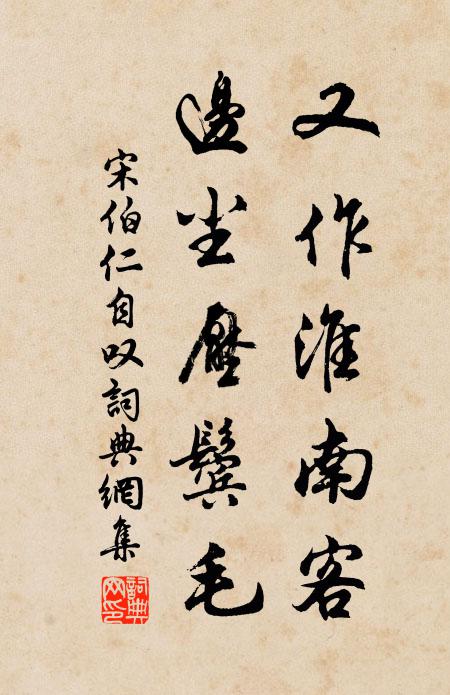 又作淮南客
邊尘壓鬓毛
宋伯仁自叹詞典網集
詞典網印